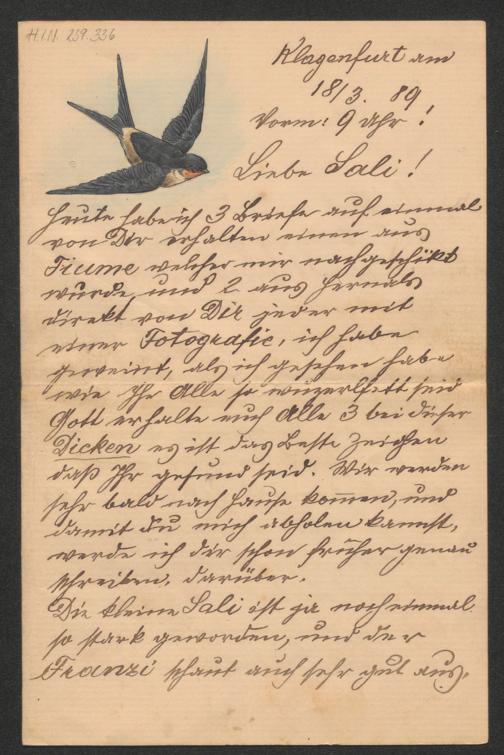 H.I.N. 239.336
Klagenfurt am
18/3. 89
Vorm: 9 Uhr!
Liebe Sali!
Heute habe ich 3 Briefe auf einmal
von Dir erhalten einen aus
Fiume welcher mir nachgeschikt
wurde, und 2 aus Hernals
direkt von Dir jeder mit
einer Fotografie, ich habe
geweint, als ich gesehen habe
wie Ihr Alle so kugerlfett seid
Gott erhalte euch Alle 3 bei dieser
Dicken es ist das Beste Zeichen
daß Ihr gesund seid. Wir werden
sehr bald nach Hause kommen, und
damit du mich abholen kannst,
werde ich dir schon früher genau
schreiben, darüber.
Die kleine Sali ist ja noch einmal
so stark geworden, und der
Franzi schaut auch sehr gut aus,